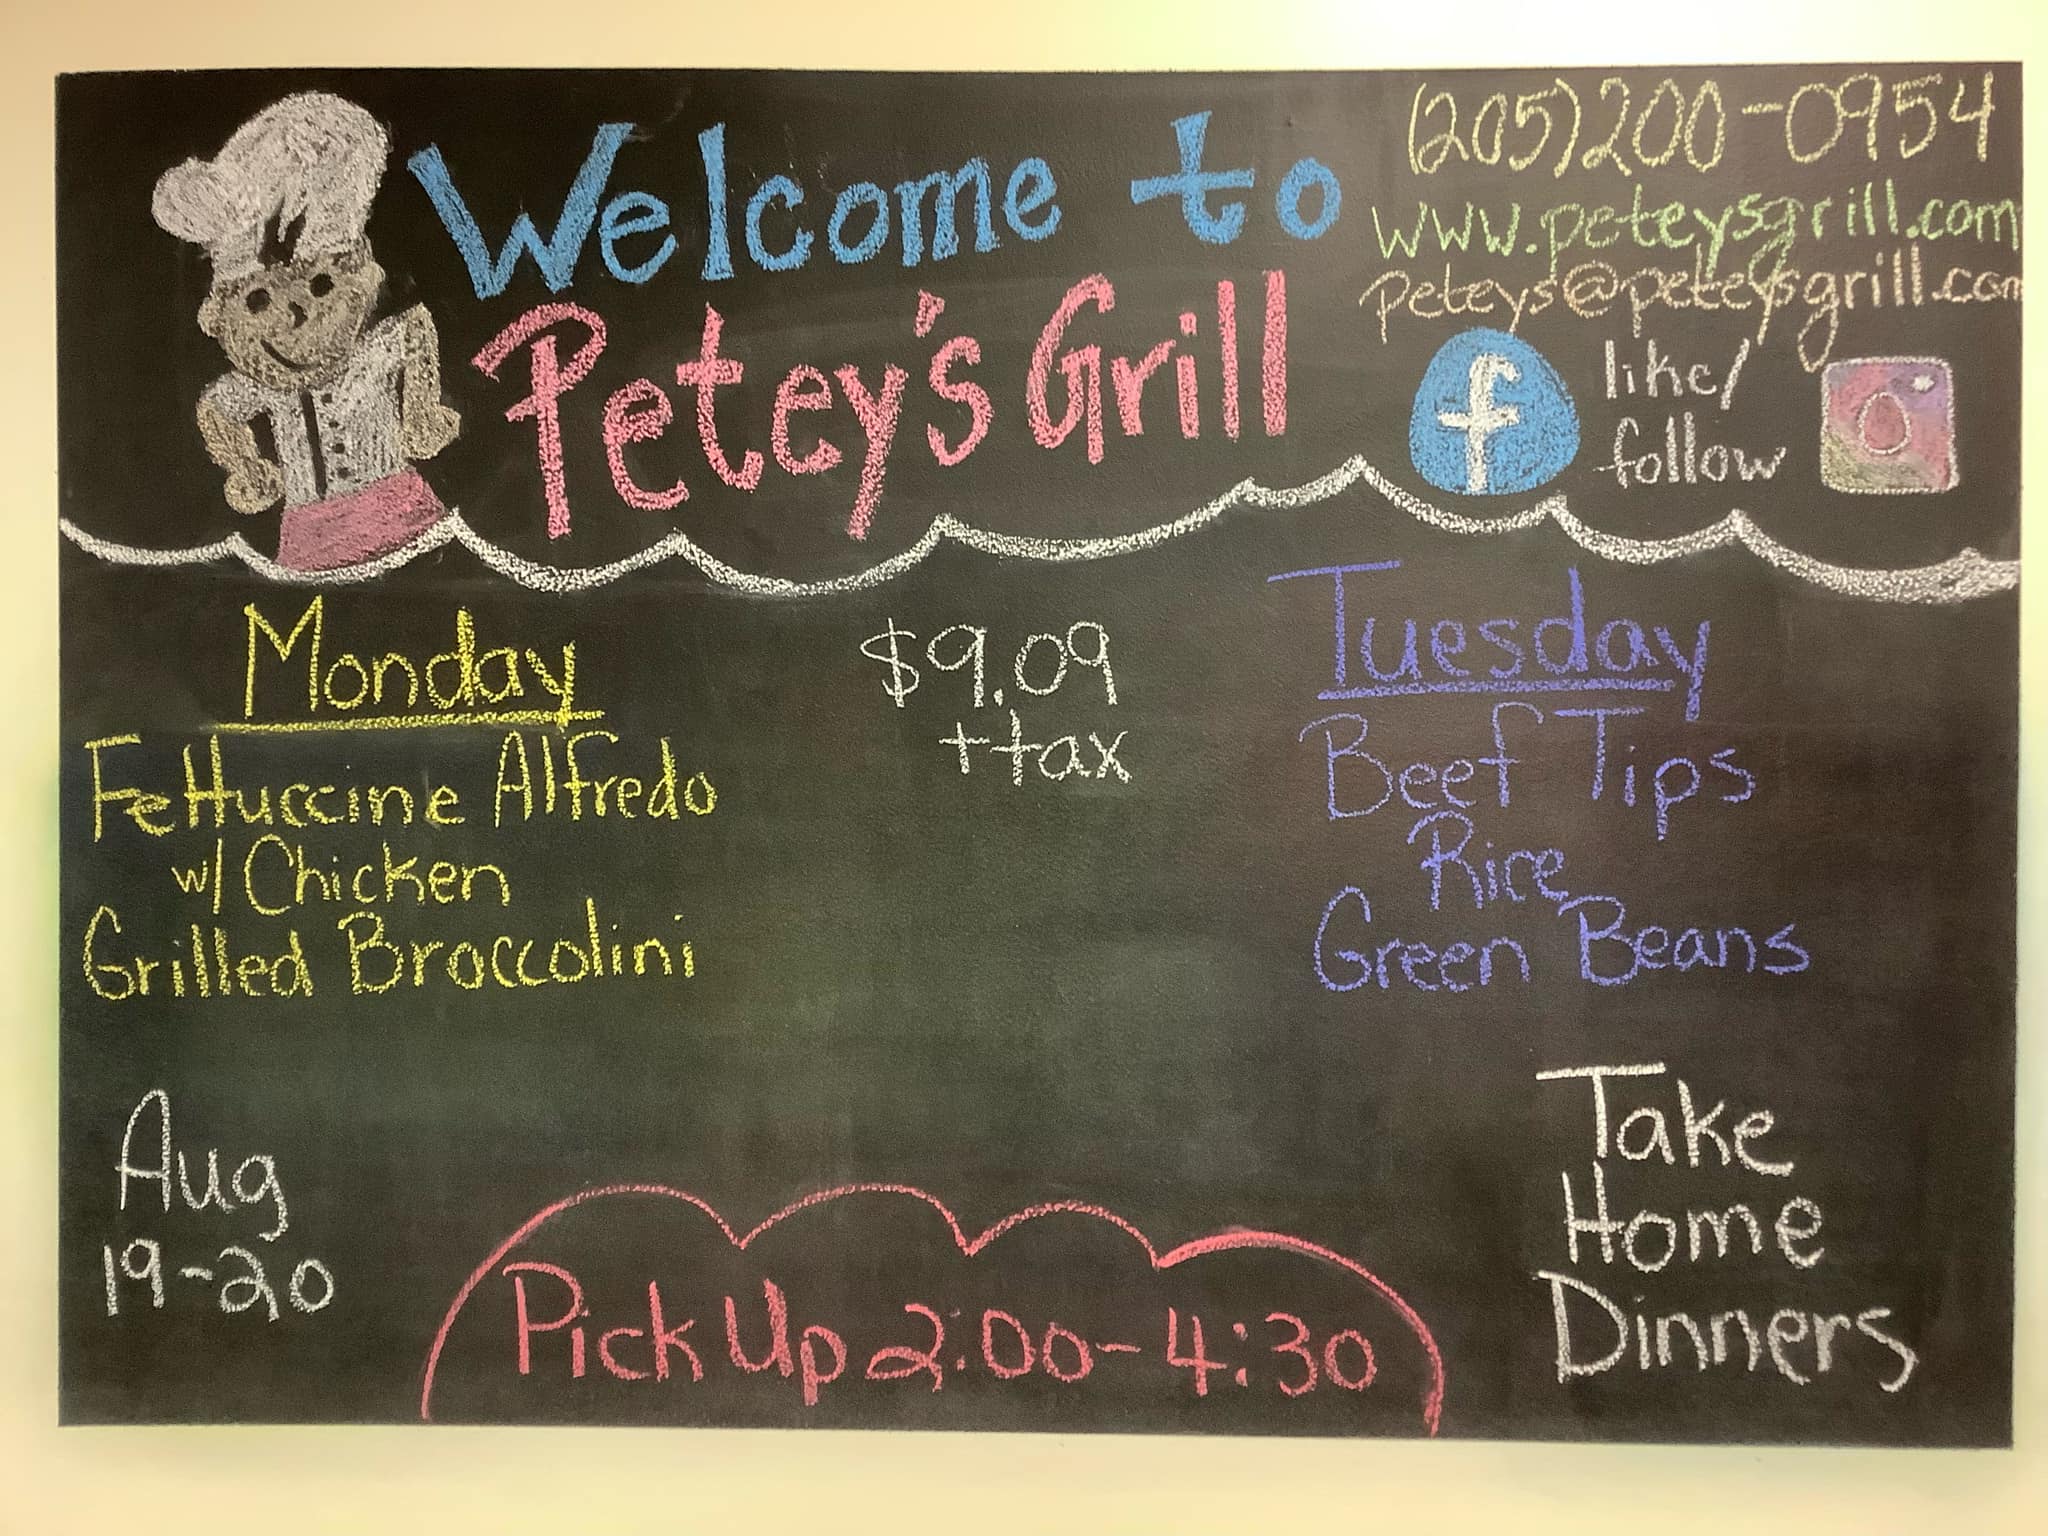 Welcome to
Petey's Grill
(205)200-0954
www.peteysgrill.com
peteys@peteysgrill.com
f
like/
follow
Monday
Fettuccine Alfredo
w/ Chicken
Grilled Broccolini
$9.09
+tax
Tuesday
Beef Tips
Rice
Green Beans
Aug
19-20
Pick Up 2:00-4:30
Take
Home
Dinners